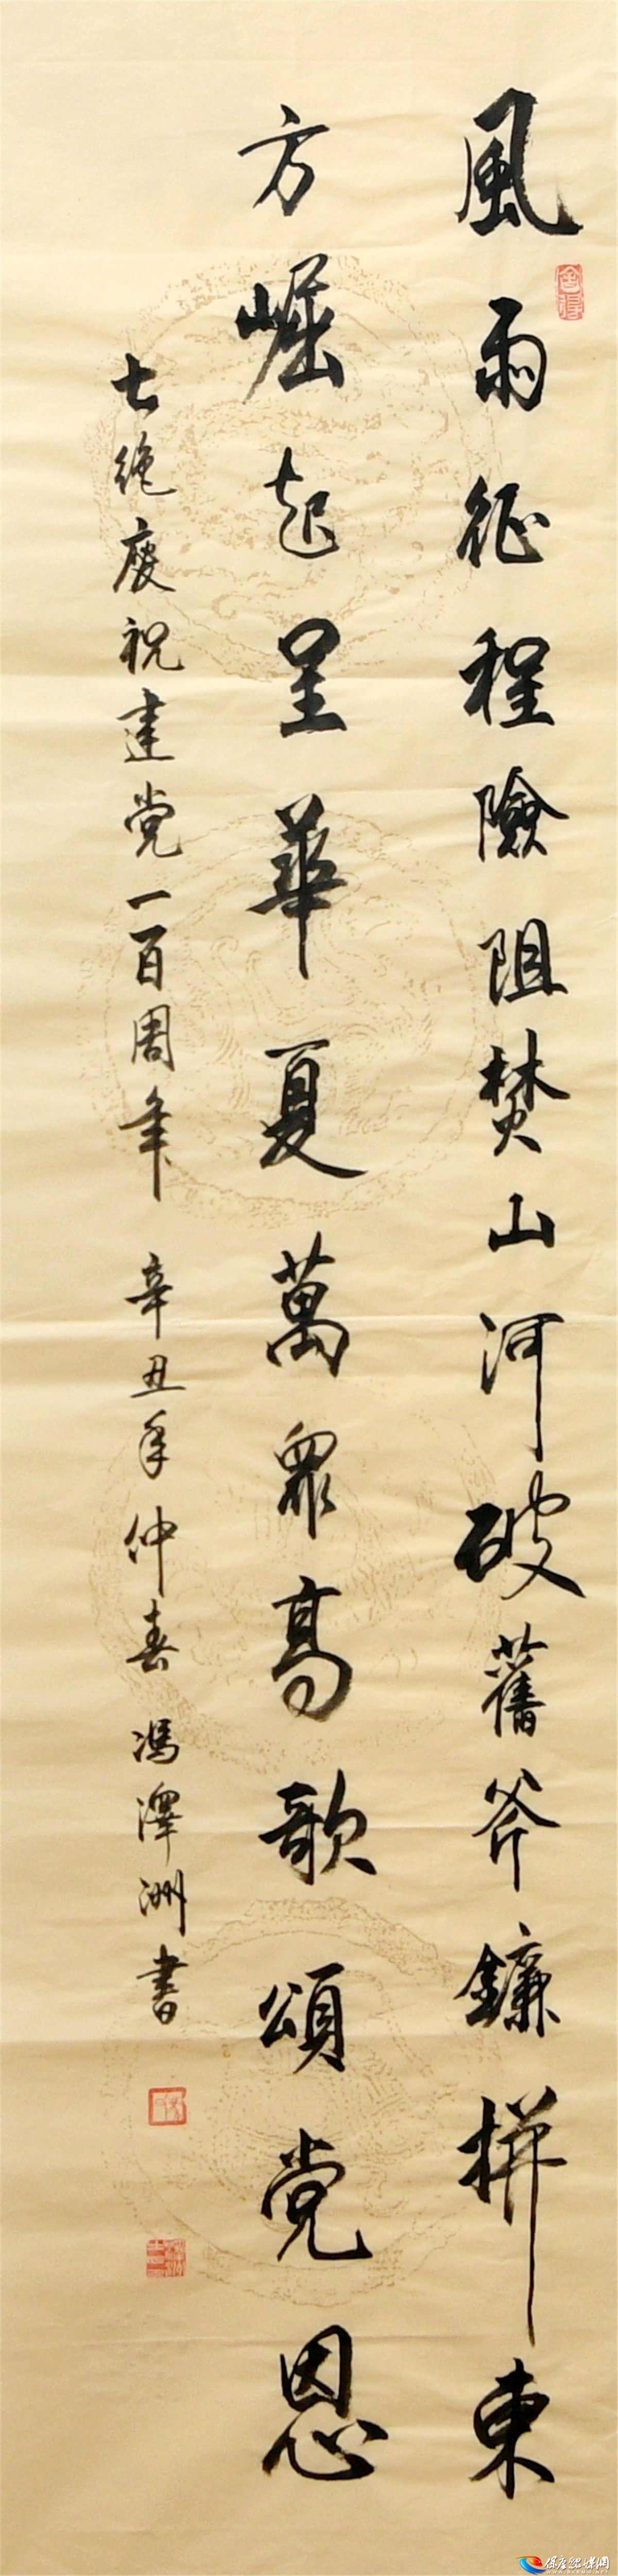 風雨征程險阻焚山河破舊斧鐮拼東
方崛起呈華夏萬眾高歌頌党恩
七绝慶祝建党一百周年 辛丑年仲春 馮澤洲書